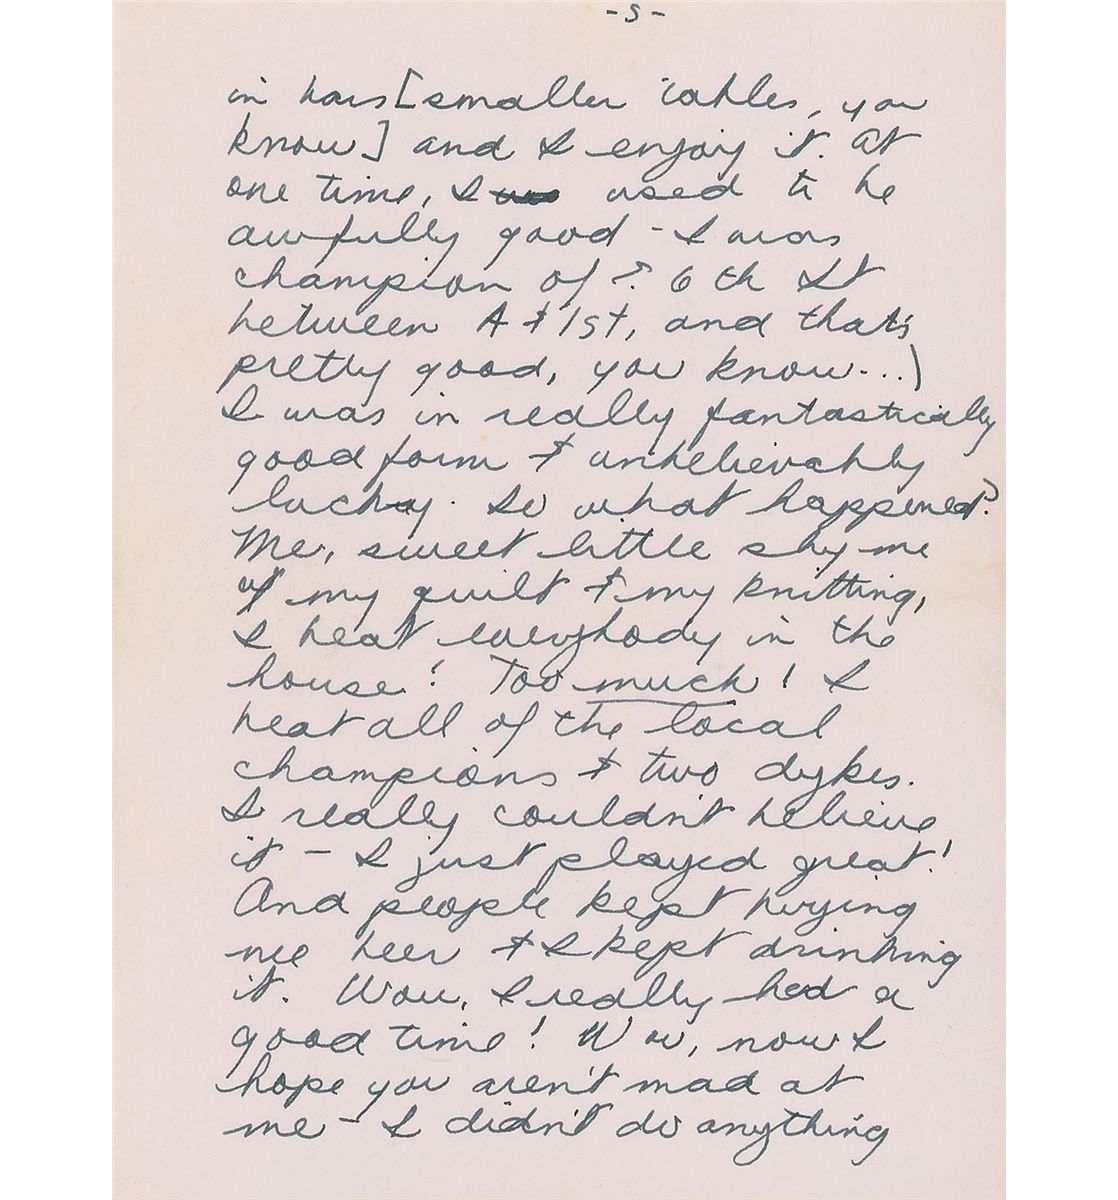 -5-
in bars [smaller tables, you
know] and I enjoy it. At
one time, I used to be
awfully good - I was
champion of E. 6th St
between A & 1st, and that's
pretty good, you know...)
I was in really fantastically
good form & unbelievably
lucky. So what happened?
Me, sweet little shy me
of my quilt & my knitting,
I beat everybody in the
house! Too much! I
beat all of the local
champions & two dykes.
I really couldn't believe
it - I just played great!
And people kept buying
me beer & I kept drinking
it. Wow, I really had a
good time! Wow, now I
hope you aren't mad at
me - I didn't do anything